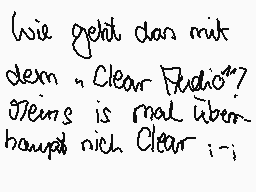 Wie geht das mit
dem "Clear Audio"?
Meins is mal über-
haupt nich Clear ;-;